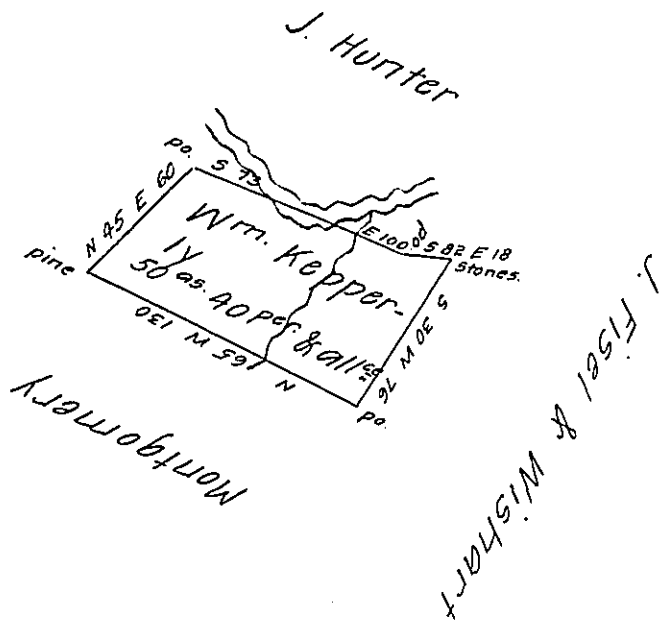 J. Hunter
po.
S 73 E 100.
N 45 E 60
od
S 82 E 18
Stones.
pine
Wm. Kepper-
ly
50 as. 40 per. & allce
S 30 W 76
po.
N 65 W 130
Montgomery
J. Fisel & Wishart